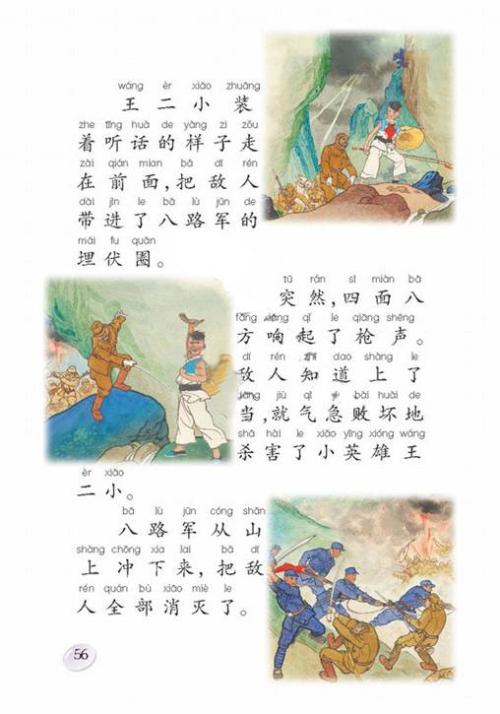 wáng èr xiǎo zhuāng
王二小装
zhe tīng huà de yàng zi zǒu
着听话的样子走
zài qián mian bǎ dí rén
在前面，把敌人
dài jìn le bā lù jūn de
带进了八路军的
mái fu quān
埋伏圈。
tū rán sì miàn bā
突然，四面八
fāng xiǎng qǐ le qiāng shēng
方响起了枪声。
dí rén zhī dao shàng le
敌人知道上了
dàng jiù qì jí bài huài de
当，就气急败坏地
shā hài le xiǎo yīng xióng wáng
杀害了小英雄王
èr xiǎo
二小。
bā lù jūn cóng shān
八路军从山
shàng chōng xia lai bǎ dí
上冲下来，把敌
rén quán bù xiāo miè le
人全部消灭了。
56